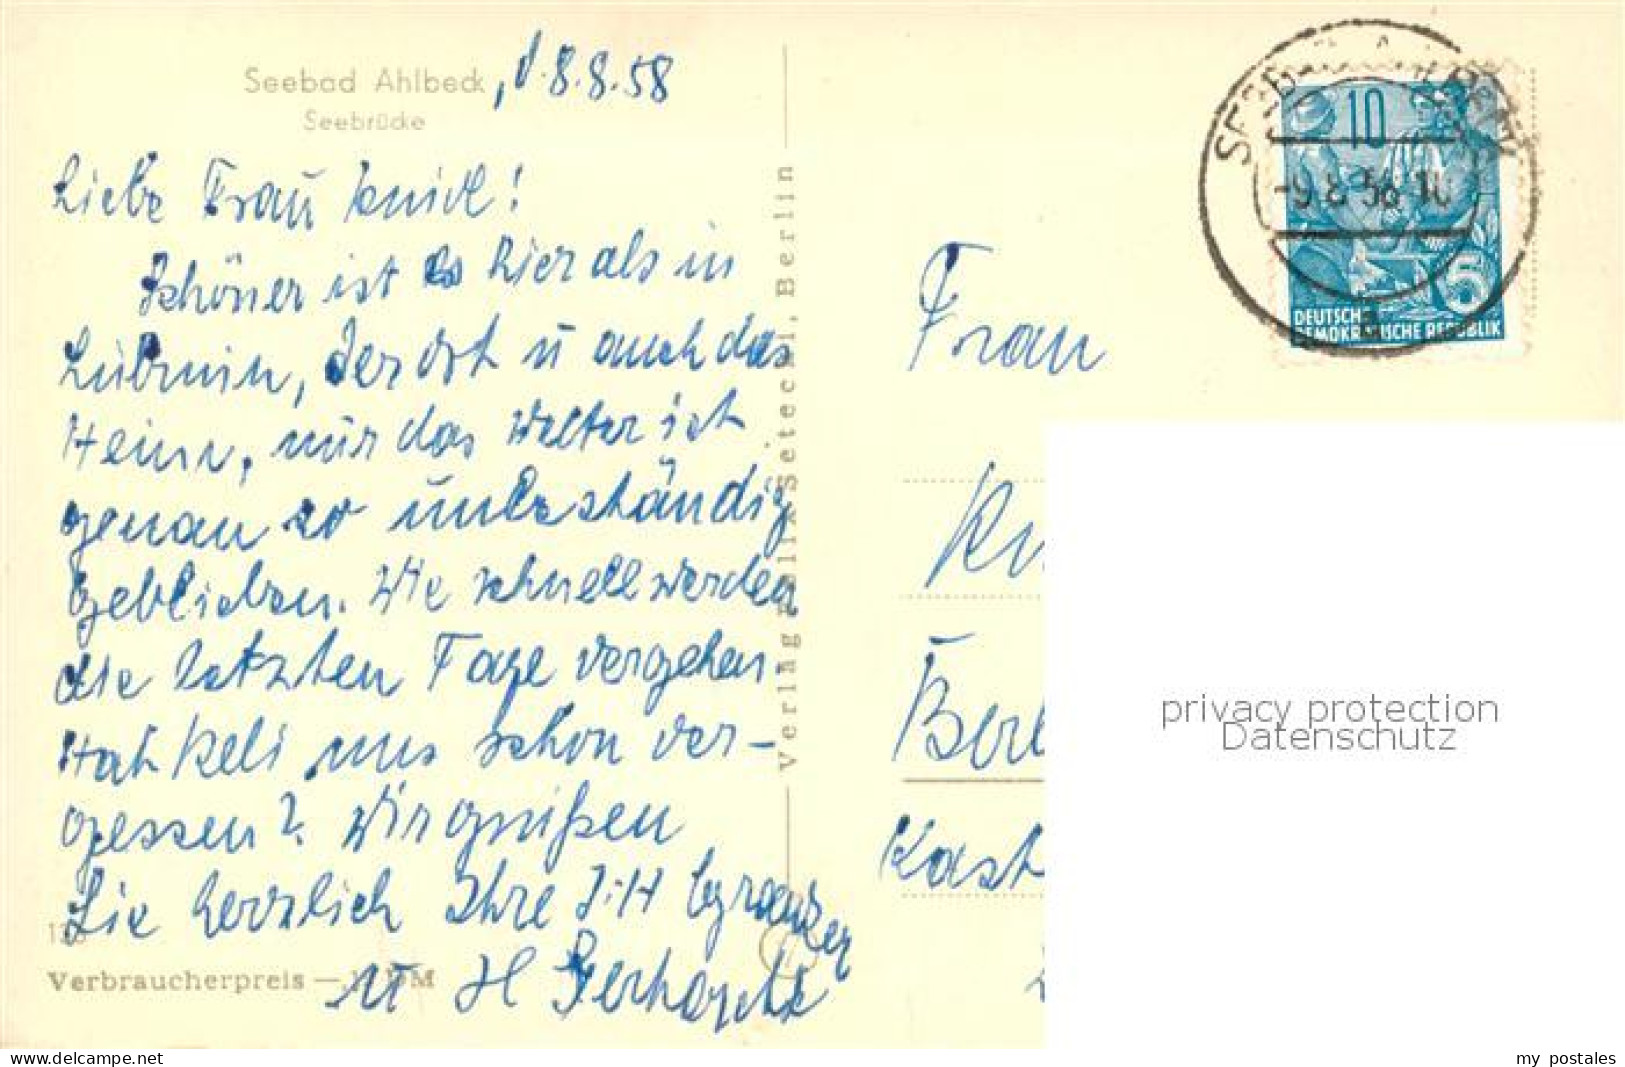 Seebad Ahlbeck, d. 8.8.58
Seebrücke
Liebe Frau
Schöner ist es hier als in
Lubmin, der Ort u auch das
Heim, nur das Wetter ist
genau so unbeständig
geblieben. Wie schnell werden
die letzten Tage vergehen
Hat uns schon ver-
gessen? Wir grüßen
Sie herzlich Ihre
u H
Verbraucherpreis — DM
Verlag Felix Setecki, Berlin
10
-9.8.58-10
5
DEUTSCHE
DEMOKRATISCHE REPUBLIK
Frau
Kn
Berl
Kast
privacy protection
Datenschutz
www.delcampe.net
my_postales